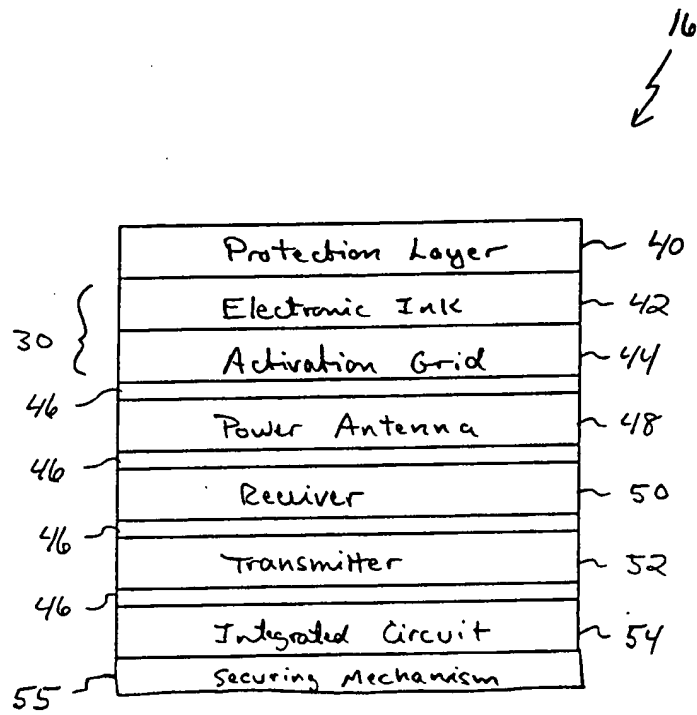 16
Protection Layer 40
30 Electronic Ink 42
Activation Grid 44
46
Power Antenna 48
46
Receiver 50
46
Transmitter 52
46
Integrated Circuit 54
55 Securing Mechanism